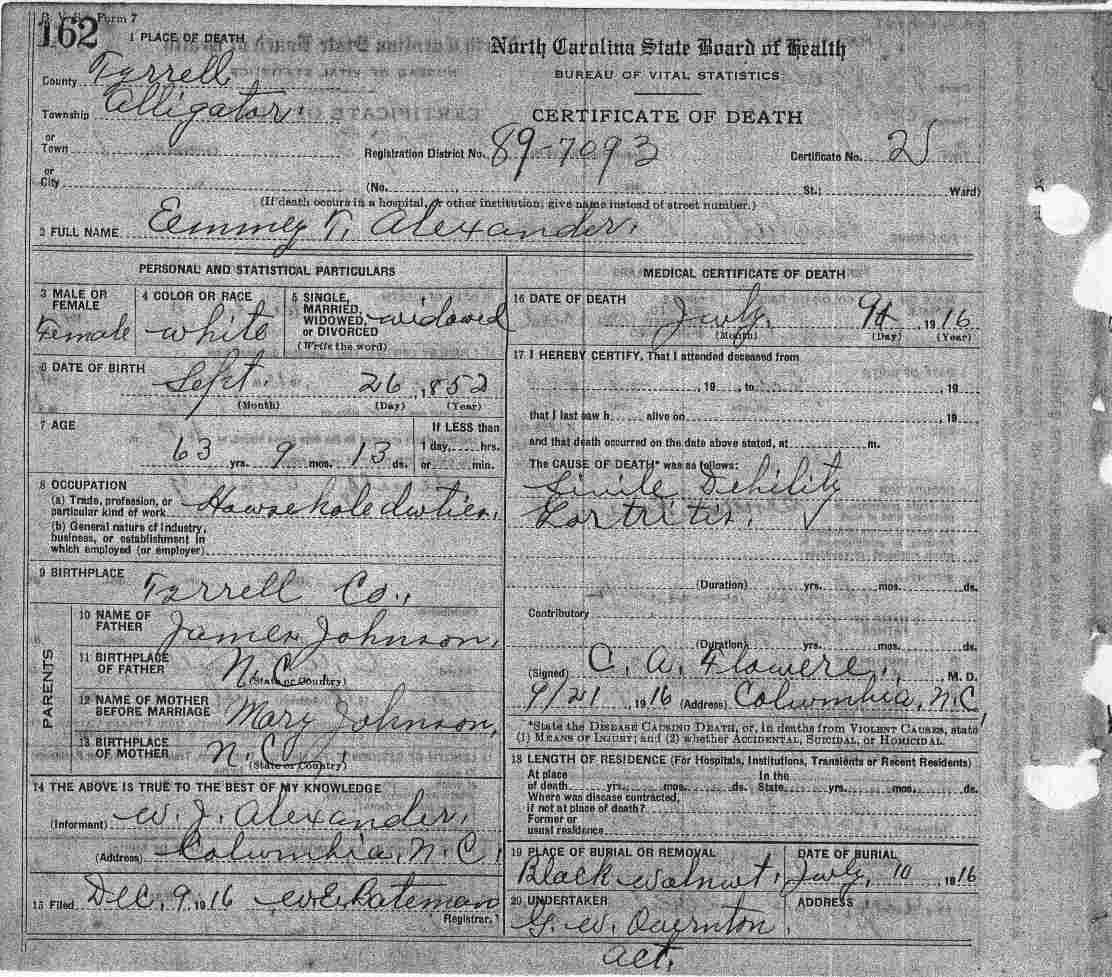 B. V. S. Form 7
162
1 PLACE OF DEATH
County Tyrrell
Township Alligator
or
Town
or
City
North Carolina State Board of Health
BUREAU OF VITAL STATISTICS
CERTIFICATE OF DEATH
Registration District No. 89-7093 Certificate No. 25
(No. St.; Ward)
(If death occurs in a hospital, or other institution, give name instead of street number.)
2 FULL NAME Emmey T. Alexander.
PERSONAL AND STATISTICAL PARTICULARS
3 MALE OR FEMALE
Female
4 COLOR OR RACE
white
5 SINGLE, MARRIED, WIDOWED, or DIVORCED
(Write the word)
widowed
6 DATE OF BIRTH
Sept. 26, 1852
(Month) (Day) (Year)
7 AGE
63 yrs. 9 mos. 13 ds.
If LESS than
1 day, hrs.
or min.
8 OCCUPATION
(a) Trade, profession, or
particular kind of work Howsehole dwties.
(b) General nature of industry,
business, or establishment in
which employed (or employer)
9 BIRTHPLACE
Tyrrell Co.,
PARENTS
10 NAME OF FATHER
James Johnson,
11 BIRTHPLACE OF FATHER
N.C.
(State or Country)
12 NAME OF MOTHER BEFORE MARRIAGE
Mary Johnson,
13 BIRTHPLACE OF MOTHER
N.C.
(State or Country)
14 THE ABOVE IS TRUE TO THE BEST OF MY KNOWLEDGE
(Informant) W. J. Alexander.
(Address) Columbia, N.C.
15 Filed Dec. 9, 1916 W.E. Bateman
Registrar.
MEDICAL CERTIFICATE OF DEATH
16 DATE OF DEATH
July, 9th, 1916
(Month) (Day) (Year)
17 I HEREBY CERTIFY, That I attended deceased from
, 19 , to , 19
that I last saw h alive on , 19
and that death occurred on the date above stated, at m.
The CAUSE OF DEATH* was as follows:
Sinile Dehility
(Duration) yrs. mos. ds.
Contributory
(Duration) yrs. mos. ds.
(Signed) C. A. Flowers, M. D.
9/21 1916 (Address) Columbia, N.C.
*State the DISEASE CAUSING DEATH, or, in deaths from VIOLENT CAUSES, state
(1) MEANS OF INJURY; and (2) whether ACCIDENTAL, SUICIDAL, or HOMICIDAL.
18 LENGTH OF RESIDENCE (For Hospitals, Institutions, Transients or Recent Residents)
At place In the
of death yrs. mos. ds. State yrs. mos. ds.
Where was disease contracted,
if not at place of death?
Former or
usual residence
19 PLACE OF BURIAL OR REMOVAL
Black walnut,
DATE OF BURIAL
July, 10 1916
20 UNDERTAKER
G. W.
Act.
ADDRESS